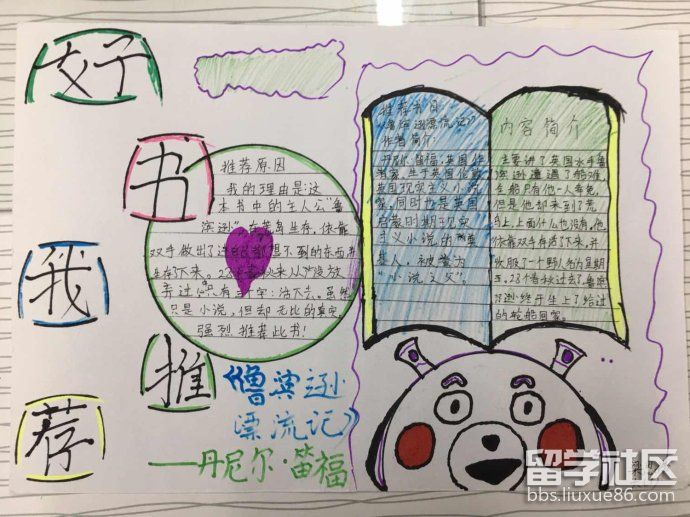 好
书
我
推
荐
推荐原因
我的理由是:这
本书中的主人公“鲁
滨逊”在荒岛生存,依靠
双手做出了连自己都想不到的东西,并
生存了下来。28年来从没放
弃过,只有三个字:活下去。虽然
只是小说,但却无比的真实,
强烈推荐此书!
《鲁滨逊
漂流记》
——丹尼尔·笛福
推荐书目
《鲁滨逊漂流记》
作者简介:
丹尼尔·笛福,英国作
家,生于英国伦敦,
英国现实主义小说
家,同时也是英国
启蒙时期现实
主义小说的奠
基人,被誉为
“小说之父”。
内容简介
主要讲了英国水手鲁
滨逊遭遇了船难,
全船只有他一人幸免,
但是他却来到了荒
岛上,上面什么也没有,他
依靠双手存活了下来,并
收服了一个野人名为星期
五,28个春秋过去了,鲁滨
逊终于坐上了给过
的轮船回家。
留学社区
bbs.liuxue86.com